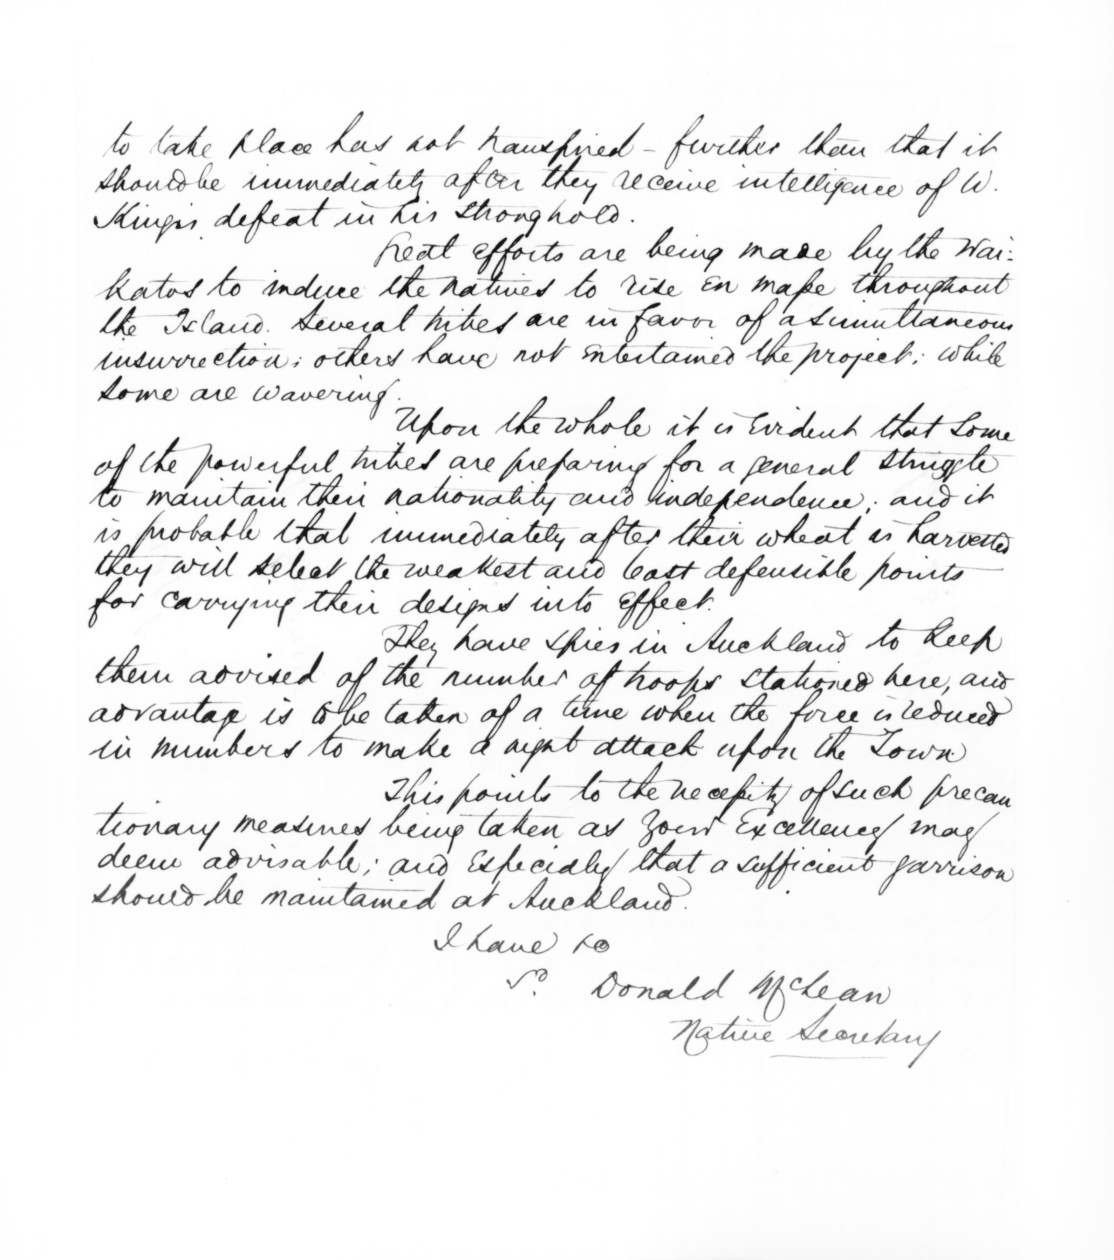 to take place has not transpired - further than that it
should be immediately after they receive intelligence of W.
King's defeat in his stronghold.
Great efforts are being made by the Wai-
katos to induce the natives to rise en masse throughout
the Island. Several tribes are in favor of a simultaneous
insurrection; others have not entertained the project; while
some are wavering.
Upon the whole it is evident that some
of the powerful tribes are preparing for a general struggle
to maintain their nationality and independence; and it
is probable that immediately after their wheat is harvested
they will select the weakest and least defensible points
for carrying their designs into effect.
They have spies in Auckland to keep
them advised of the number of troops stationed here, and
advantage is to be taken of a time when the force is reduced
in numbers to make a night attack upon the Town
This points to the necessity of such precau
tionary measures being taken as Your Excellency may
deem advisable; and especially that a sufficient garrison
should be maintained at Auckland.
I have
Donald McLean
Native Secretary